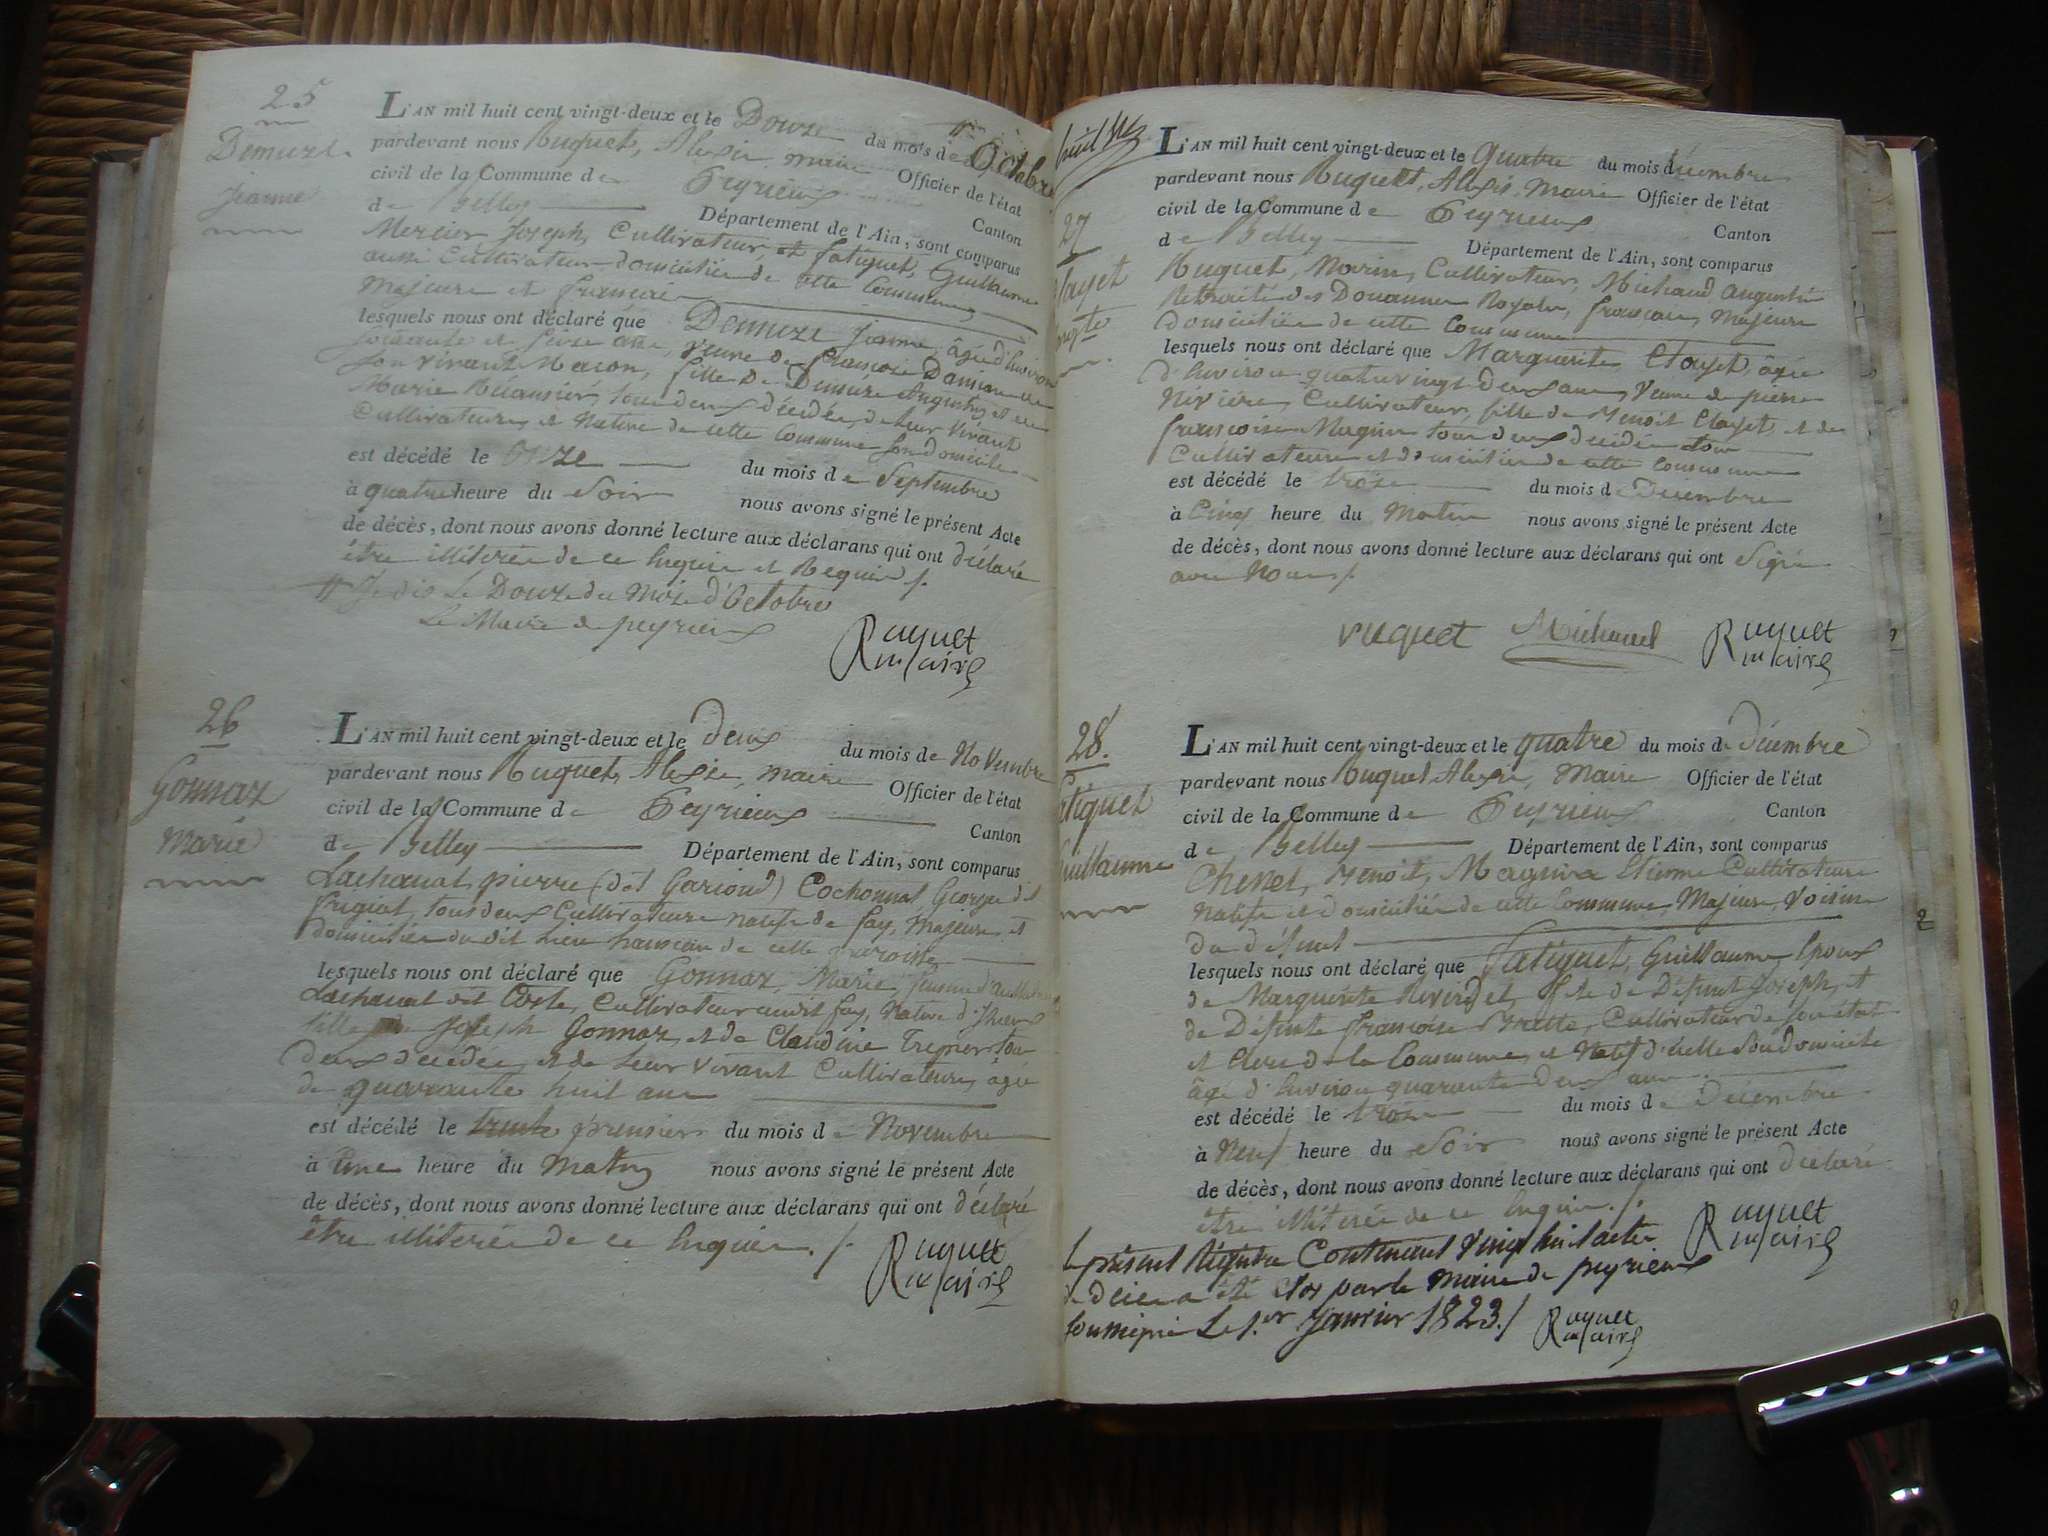 25
Demuze
Jeanne
L'AN mil huit cent vingt-deux et le Douze du mois de Octobre
pardevant nous Ruquet, Alexis, maire Officier de l'état
civil de la Commune de Peyrieux Canton
de Belley Département de l'Ain, sont comparus
Mercier Joseph, Cultivateur, et fatiquet, Guillaume
aussi Cultivateur domiciliés de cette Commune
Majeurs et francais
lesquels nous ont déclaré que Demuze Jeanne âgée d'Environ
soixante et seize ans, veuve de francois
son vivant Macon, fille de Demuze et de
Marie tous deux décédés, de leur vivant
Cultivateurs, et Native de cette Commune son domicile
est décédé le Onze du mois de Septembre
à quatre heure du Soir nous avons signé le présent Acte
de décès, dont nous avons donné lecture aux déclarans qui ont déclaré
être illiterés de ce Enquis et Requis /.
Je dis Le Douze du Mois d'Octobre
Le Maire de peyrieux Ruquet
maire
26
Gonnaz
Marie
L'AN mil huit cent vingt-deux et le deux du mois de Novembre
pardevant nous Ruquet, Alexis, maire Officier de l'état
civil de la Commune de Peyrieux Canton
de Belley Département de l'Ain, sont comparus
Lachanat pierre (dit Gariond) Cochonnat George dit
frigiat, tous deux Cultivateurs natifs de fay, Majeurs, et
domiciliés du dit Lieu hameau de cette paroisse
lesquels nous ont déclaré que Gonnaz, Marie, femme
Lachanat dit Coste, Cultivateur audit fay, Native
fille de Joseph Gonnaz et de Claudine
deux décédés, et de Leur vivant Cultivateurs, âgée
de quarante huit ans
est décédé le trente premier du mois de Novembre
à Une heure du Matin nous avons signé le présent Acte
de décès, dont nous avons donné lecture aux déclarans qui ont déclaré
être illiterés de ce Enquis. /. Ruquet
maire
27
L'AN mil huit cent vingt-deux et le Quatre du mois décembre
pardevant nous Ruquet, Alexis, Maire Officier de l'état
civil de la Commune de Peyrieux Canton
de Belley Département de l'Ain, sont comparus
Ruquet, Marin, Cultivateur, Michaud Augustin
Retraité des Douannes Royales, francais, Majeurs
Domiciliés de cette Commune
lesquels nous ont déclaré que Marguerite Clayet, âgée
d'Environ quatre vingt deux ans, Veuve de pierre
Rivière, Cultivateur, fille de Benoit Clayet, et de
francoise Magnin tous deux décédés
Cultivateurs et domiciliés de cette Commune
est décédé le trois du mois de Décembre
à Cinq heure du Matin nous avons signé le présent Acte
de décès, dont nous avons donné lecture aux déclarans qui ont Signé
avec Nous /.
ruquet Michaud Ruquet
maire
28.
Fatiquet
Guillaume
L'AN mil huit cent vingt-deux et le quatre du mois de décembre
pardevant nous Ruquet Alexis, Maire Officier de l'état
civil de la Commune de Peyrieux Canton
de Belley Département de l'Ain, sont comparus
Chenet, Benoit, Magnin Etienne Cultivateurs
Natifs et domiciliés de cette Commune, Majeurs, Voisins
du défunt
lesquels nous ont déclaré que Fatiquet, Guillaume Epoux
de Marguerite fils de Défunt Joseph, et
de Défunte francoise Cultivateur de son état
et de la Commune, et Natif d'icelle Son domicile
âgé d'Environ quarante deux ans
est décédé le trois du mois de Décembre
à Neuf heure du Soir nous avons signé le présent Acte
de décès, dont nous avons donné lecture aux déclarans qui ont déclaré
être illiterés de ce Enquis. /. Ruquet
maire
Le présent Registre Contenant Vingt huit actes
de décès a été Clos par le Maire de peyrieux
soussigné Le 1.er Janvier 1823./ Ruquet
maire